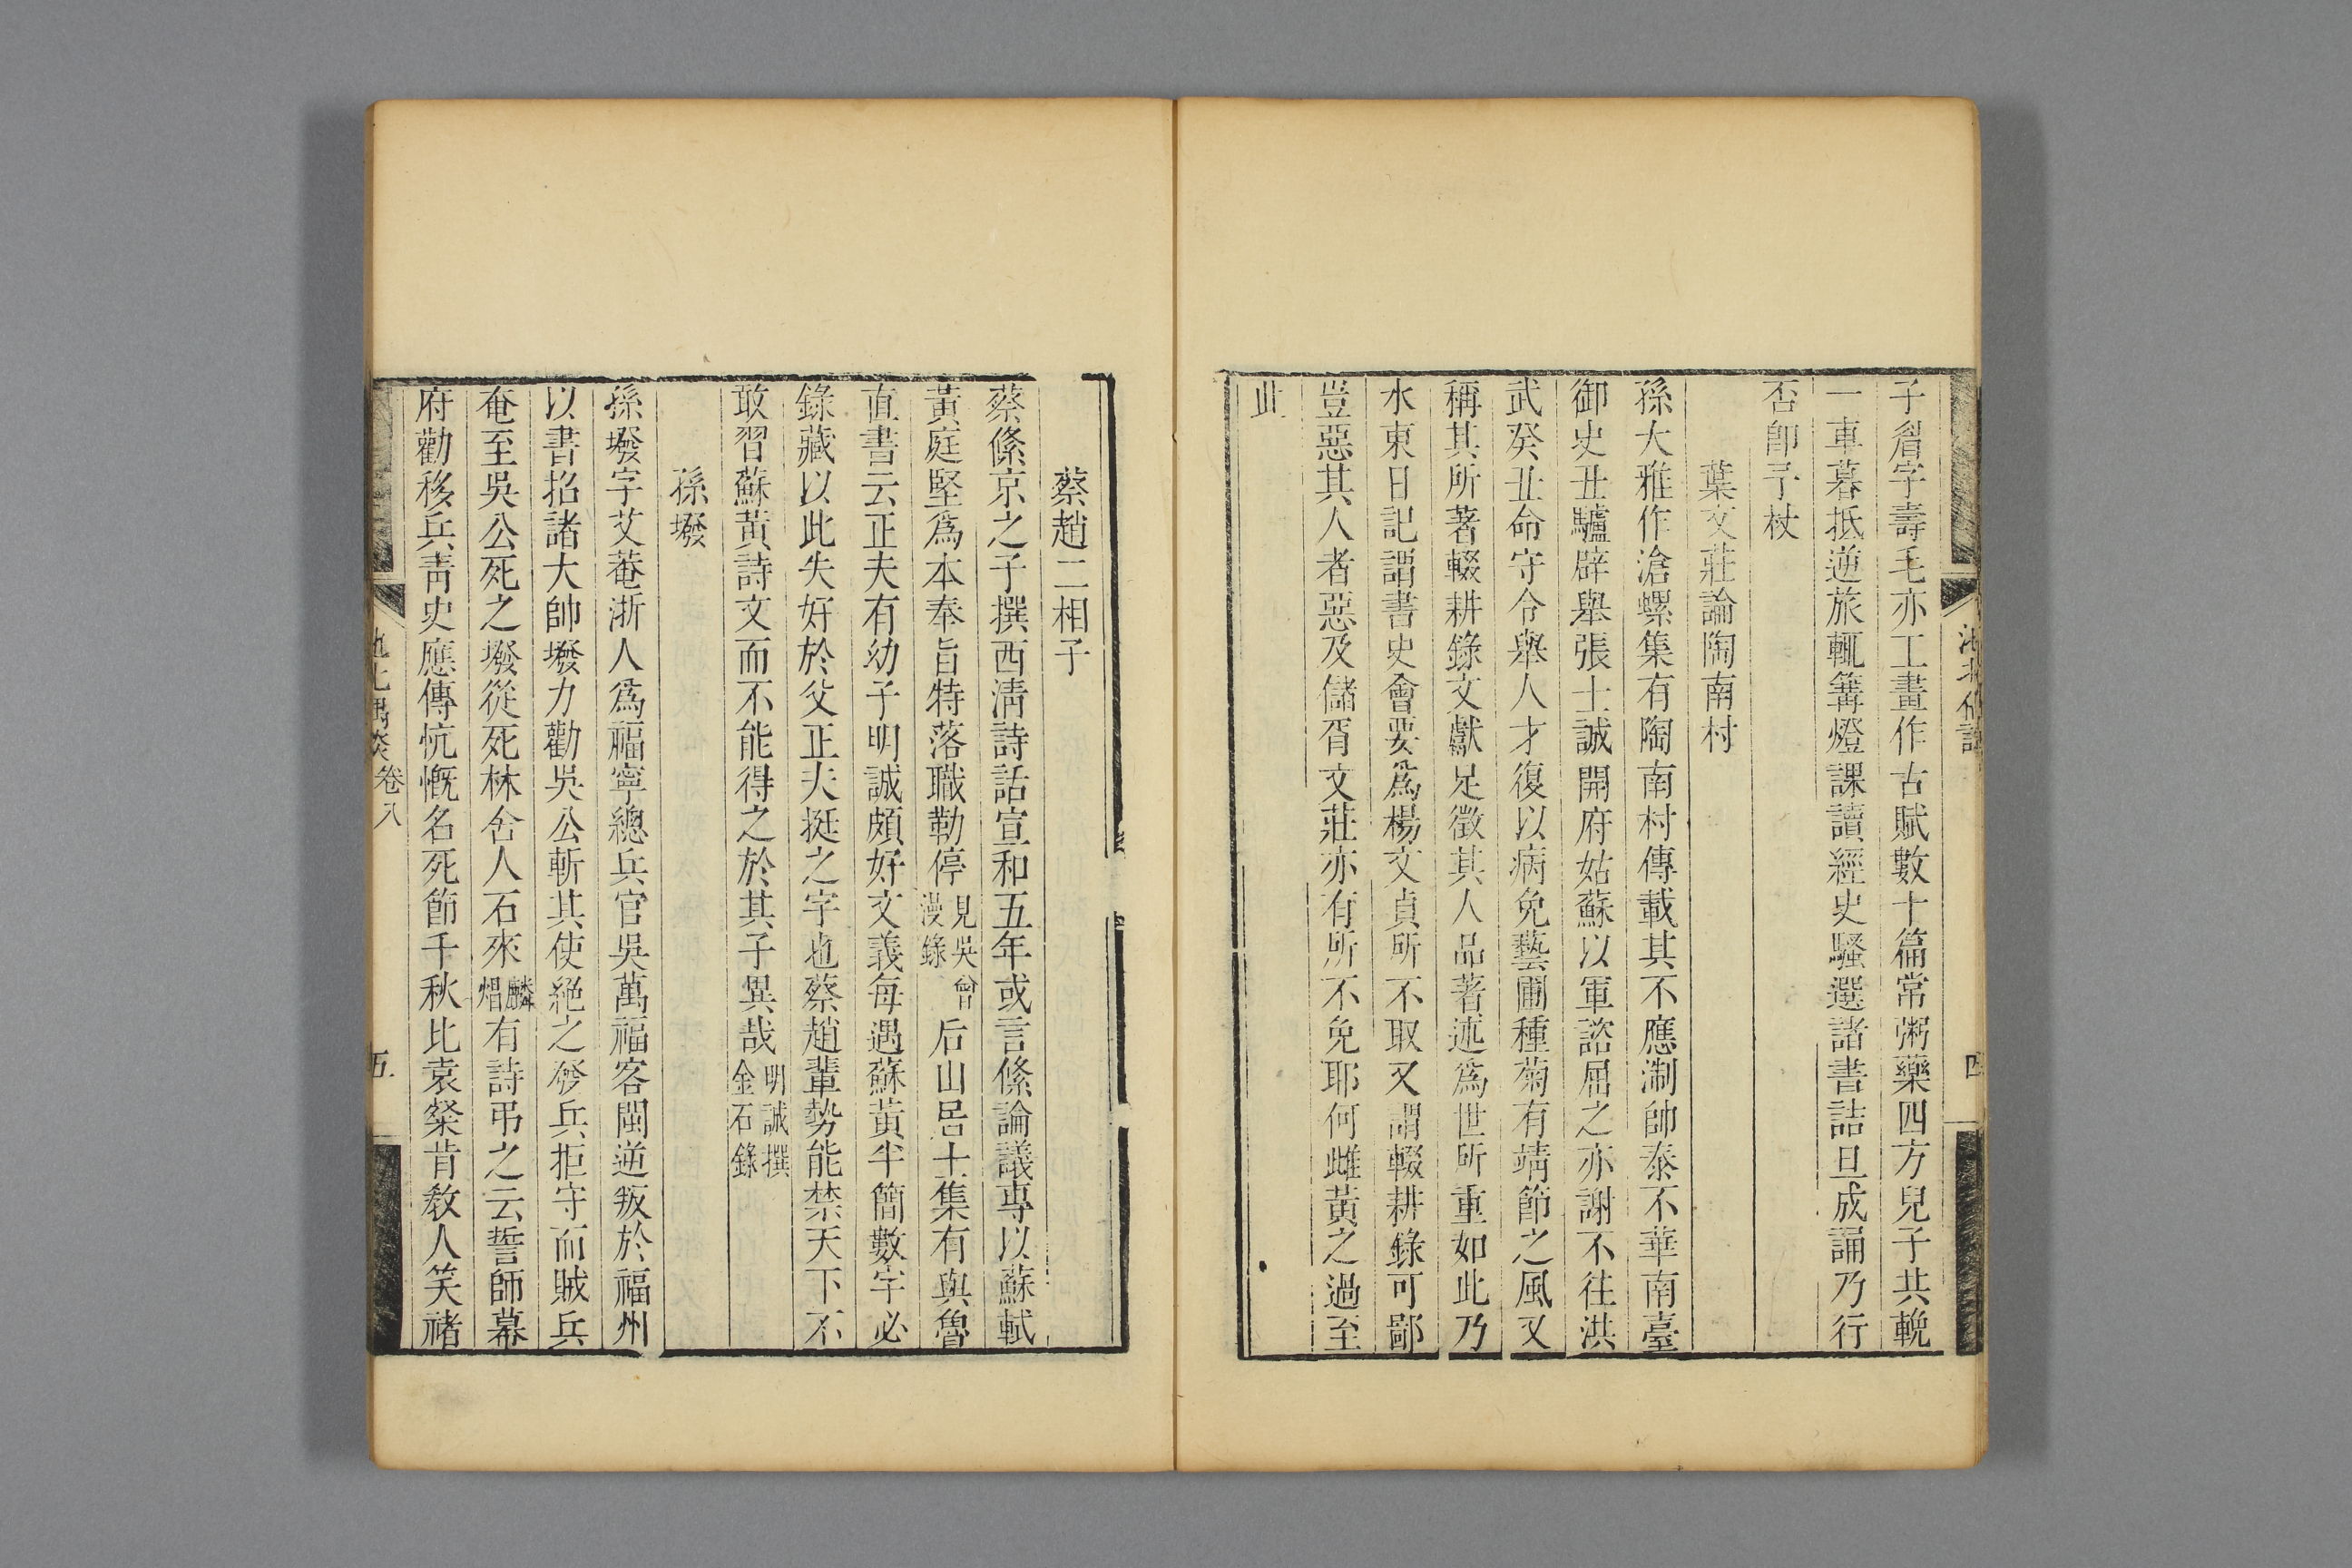 子眉字壽毛亦工畫作古賦數十篇常粥藥四方兒子共輓
一車暮抵逆旅輒篝燈課讀經史騷選諸書詰旦成誦乃行
否卽予杖
葉文莊論陶南村
孫大雅作滄螺集有陶南村傳載其不應淛帥泰不華南臺
御史丑驢辟舉張士誠開府姑蘇以軍諮屈之亦謝不往洪
武癸丑命守令舉人才復以病免藝圃種菊有靖節之風又
稱其所著輟耕錄文獻足徵其人品著述爲世所重如此乃
水東日記謂書史會要爲楊文貞所不取又謂輟耕錄可鄙
豈惡其人者惡及儲胥文莊亦有所不免耶何雌黃之過至
此
四
蔡趙二相子
蔡絛京之子撰西淸詩話宣和五年或言絛論議專以蘇軾
黃庭堅爲本奉旨特落職勒停見吳曾漫錄后山呂士集有與魯
直書云正夫有幼子明誠頗好文義每遇蘇黃半簡數字必
錄藏以此失好於父正夫挺之字也蔡趙輩勢能禁天下不
敢習蘇黃詩文而不能得之於其子異哉明誠撰金石錄
孫墢
孫墢字艾菴浙人爲福寧總兵官吳萬福客閩逆叛於福州
以書招諸大帥墢力勸吳公斬其使絕之發兵拒守而賊兵
奄至吳公死之墢從死林舍人石來麟焻有詩弔之云誓師幕
府勸移兵靑史應傳忼慨名死節千秋比袁粲肯敎人笑褚
卷八
五